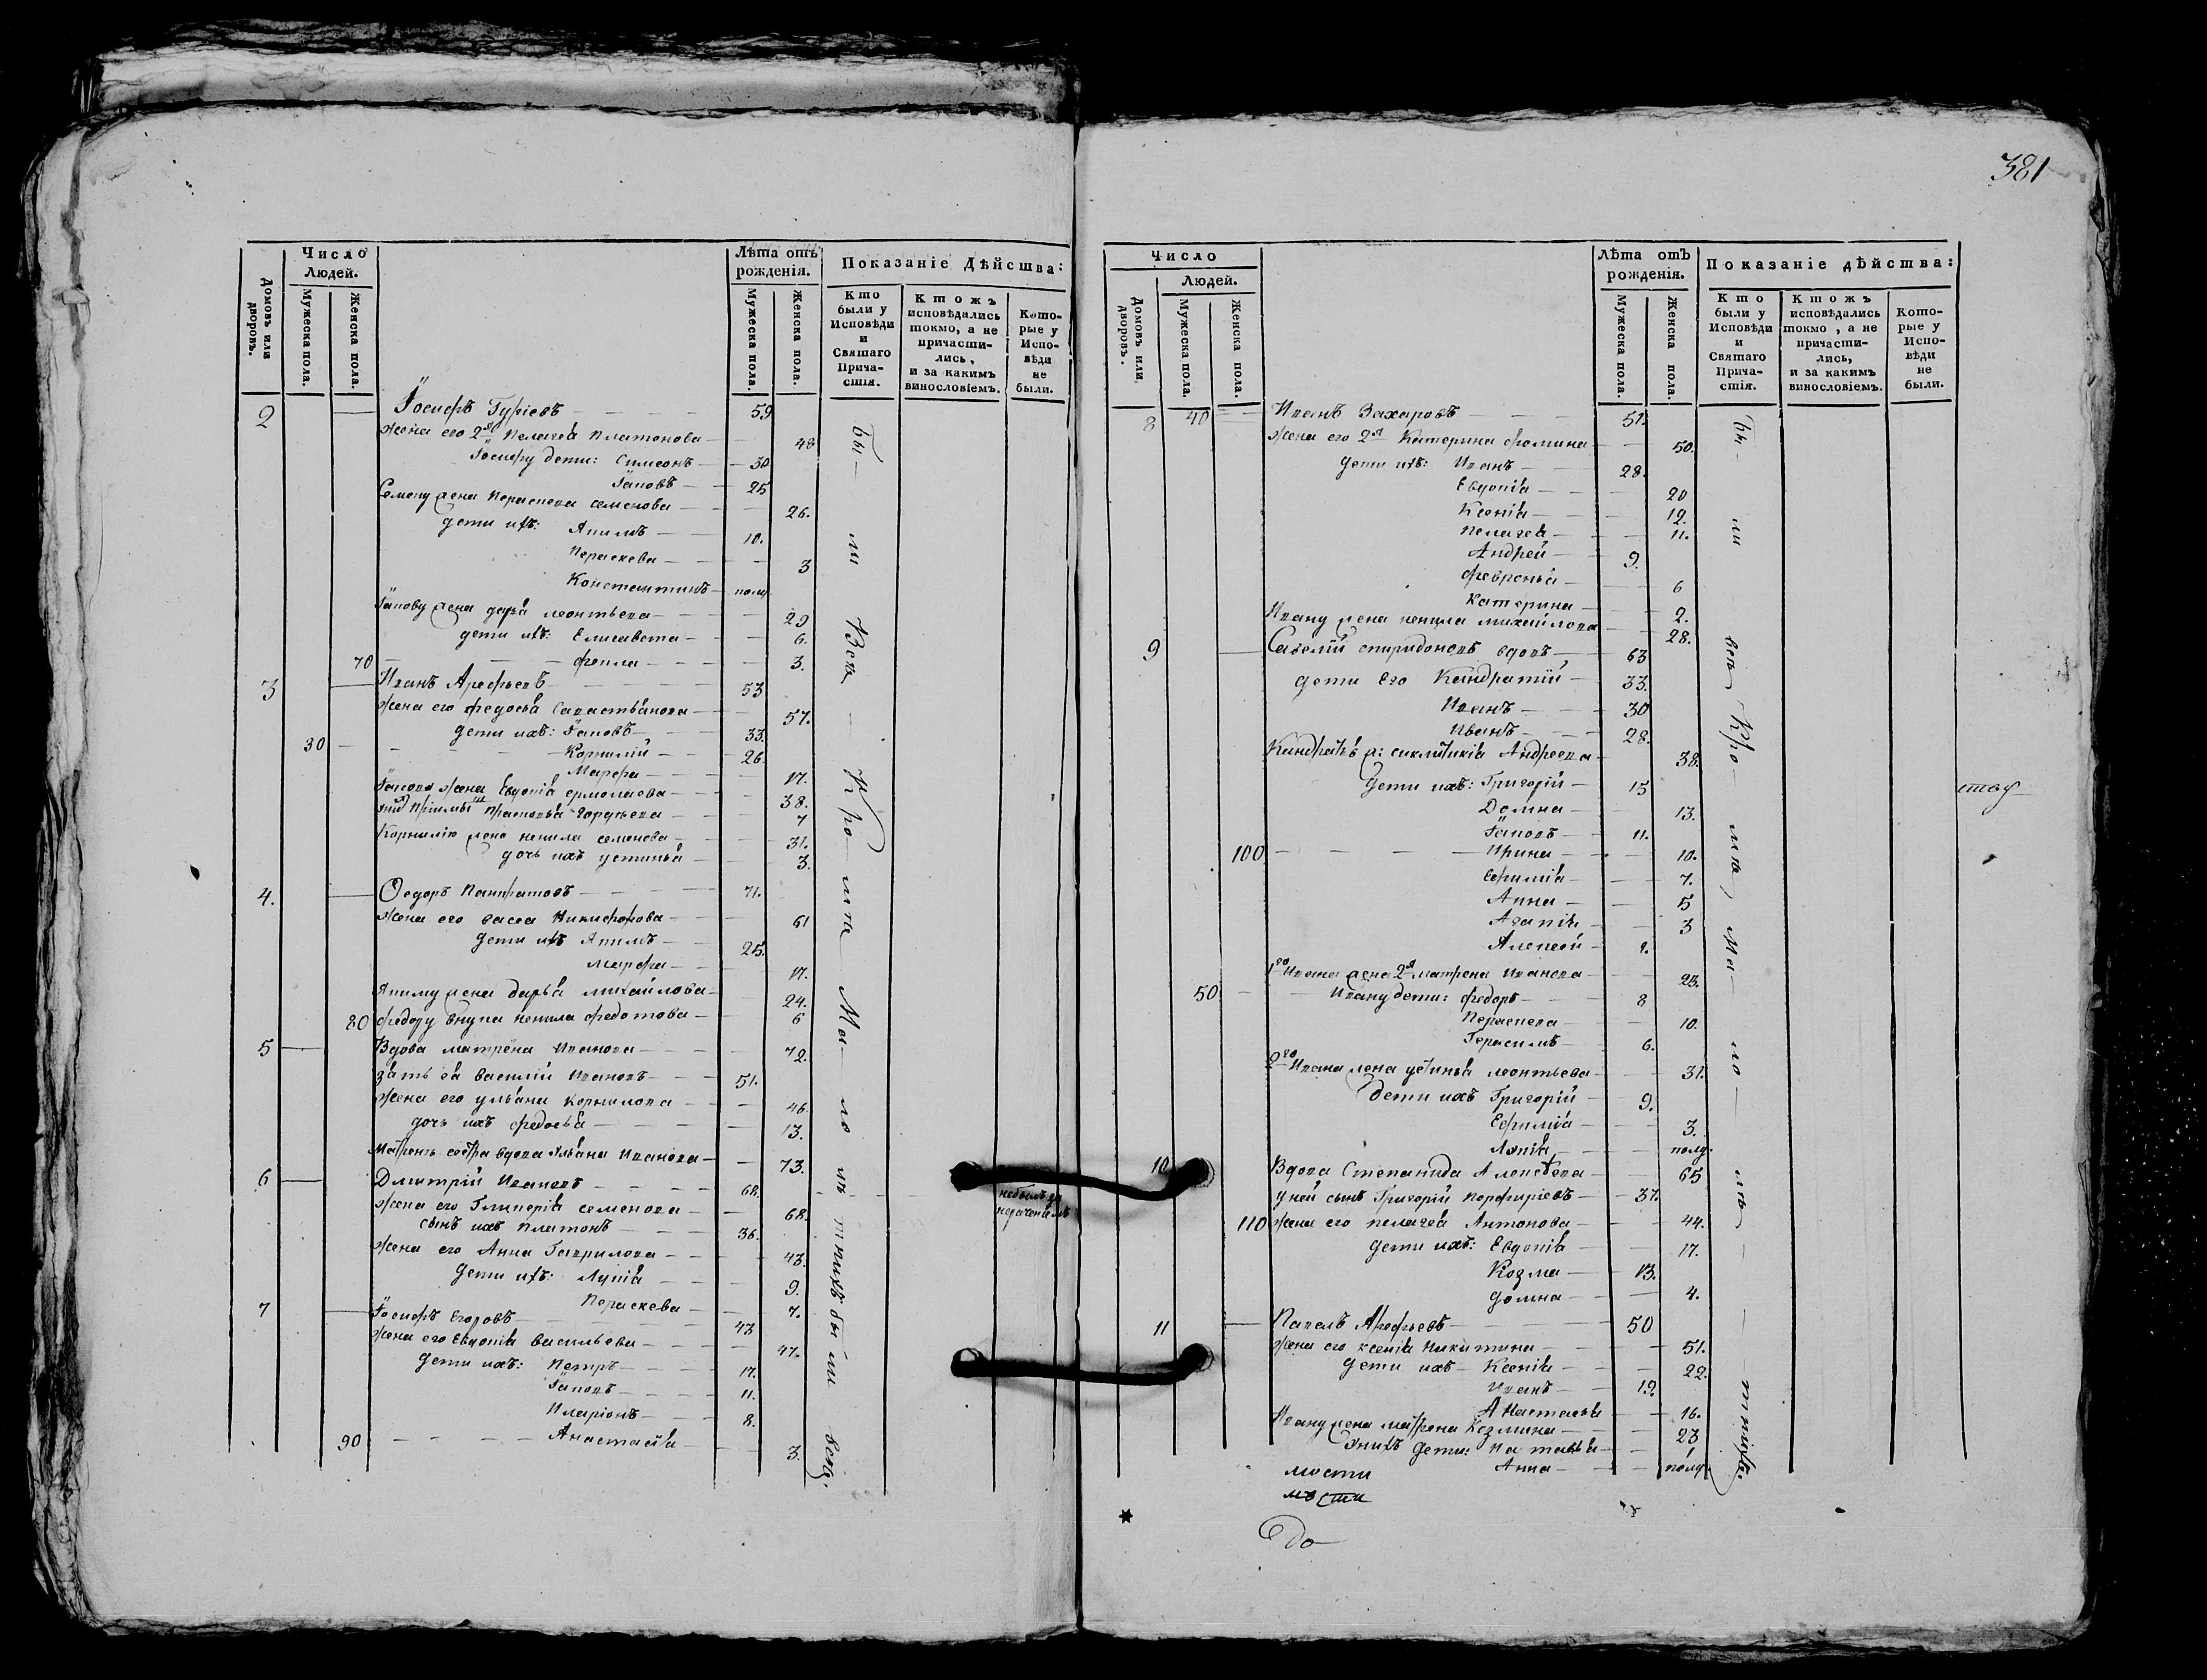 381
Число
Людей.
Домовъ или дворовъ.
Мужеска пола.
Женска пола.
Лѣта отъ рожденія.
Мужеска пола.
Женска пола.
Показаніе Дѣйства:
Кто были у Исповѣди и Святаго Причастія.
Ктожъ исповѣдались токмо, а не причастились, и за какимъ винословіемъ.
Которые у Исповѣди не были.
2 Іосифъ Гуріевъ 59
жена его 2я Пелагея Платонова 48
Іосифу дети: Симеонъ 30
Іаковъ 25
Семену жена Параскева Семенова 26.
дети ихъ: Якимъ 10.
Параскева 3
Константинъ полу
Іакову жена дарья леонтьева 29
дети ихъ: Елисавета 6.
70 фекла 3.
3 Иванъ Арефьевъ 53
жена его федосья Савастьянова 57.
дети ихъ: Іаковъ 33.
30 Корнилій 26
Марфа 17.
Іакова жена Евдокія ермолаева 38.
7
Корнилію жена ненила семенова 31.
дочь ихъ устинья 3.
4. Ѳедоръ Панкратовъ 71.
жена его васса Никифорова 61
дети ихъ Якимъ 25.
Марфа 17.
Якиму жена дарья михайлова 24.
80 федору внука ненила федотова 6
5 Вдова матрена Иванова 72.
зять ея василій Ивановъ 51.
жена его ульяна корнилова 46.
дочь ихъ федосья 13.
Матрене сестра вдова Ульяна Иванова 73.
6 Дмитрій Ивановъ 68.
жена его Гликерія семенова 68.
сынъ ихъ платонъ 36.
жена его Анна Гаврилова 43.
дети ихъ: Лукія 9.
Параскева 7.
7 Іосифъ Егоровъ 43
жена его Евдокія васильева 47.
дети ихъ: Петръ 17.
Іаковъ 11.
Иларіонъ 8.
90 Анастасія 3.
Бы— ли Все Кро— ме Ма— ло ле тнихъ были все
небылъ за нераченіемъ
Число
Людей.
Домовъ или дворовъ.
Мужеска пола.
Женска пола.
Лѣта отъ рожденія.
Мужеска пола.
Женска пола.
Показаніе дѣйства:
Кто были у Исповѣди и Святаго Причастія.
Ктожъ исповѣдались токмо, а не причастились, и за какимъ винословіемъ.
Которые у Исповѣди не были.
8 40 Иванъ Захаровъ 51.
жена его 2я Катерина фомина 50.
дети ихъ: Иванъ 28.
Евдокія 20
Ксенія 12.
Пелагея 11.
Андрей 9.
февронья 6
Катерина 2.
Ивану жена ненила михайлова 28.
9 Савелій спиридоновъ вдовъ 63
дети его Кандратій 33.
Иванъ 30
Иванъ 28.
Кандратья ж: сиклитикія Андреева 38.
дети ихъ: Григорій 15
Домна 13.
Іаковъ 11.
100 Ирина 10.
Ефимія 7.
Анна 5
Агапія 3
Алексей 1.
1го Ивана жена 2я матрена Иванова 25.
50 Ивану дети: федоръ 8
Параскева 10.
Герасимъ 6.
2го Ивана жена устинья леонтьева 31.
дети ихъ Григорій 9.
Ефимія 3.
Лукія полу.
10 Вдова Степанида Алексеева 65
у ней сынъ Григорій Порфиріевъ 37.
110 жена его пелагея Антонова 44.
дети ихъ: Евдокія 17.
Козма 13.
домна 4.
11 Павелъ Арефьевъ 50
жена его ксенія Никитина 51.
дети ихъ Ксенія 22.
Иванъ 19.
Анастасія 16.
Ивану жена матрена Козмина 23
у нихъ дети: Наталья 1
Анна полу
Бы— ли все Кро— ме, Ма— ло— ле— тнихъ.
мости
мости
до